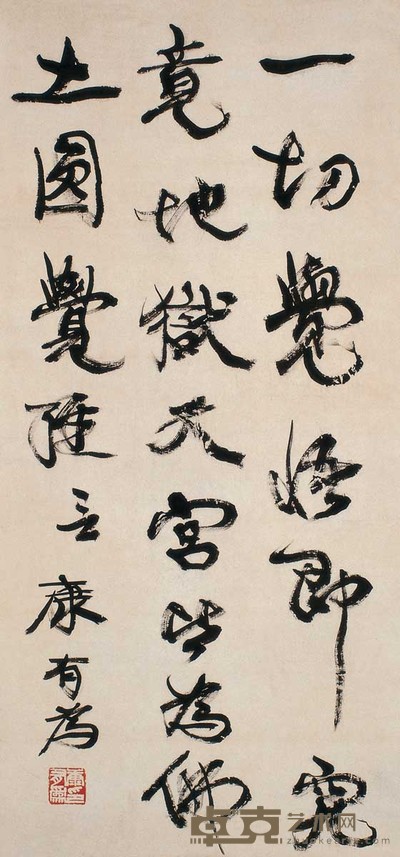 一切覺悟即究
竟地獄天宮皆為佛
土圓覺經言 康有為
卓克艺术网